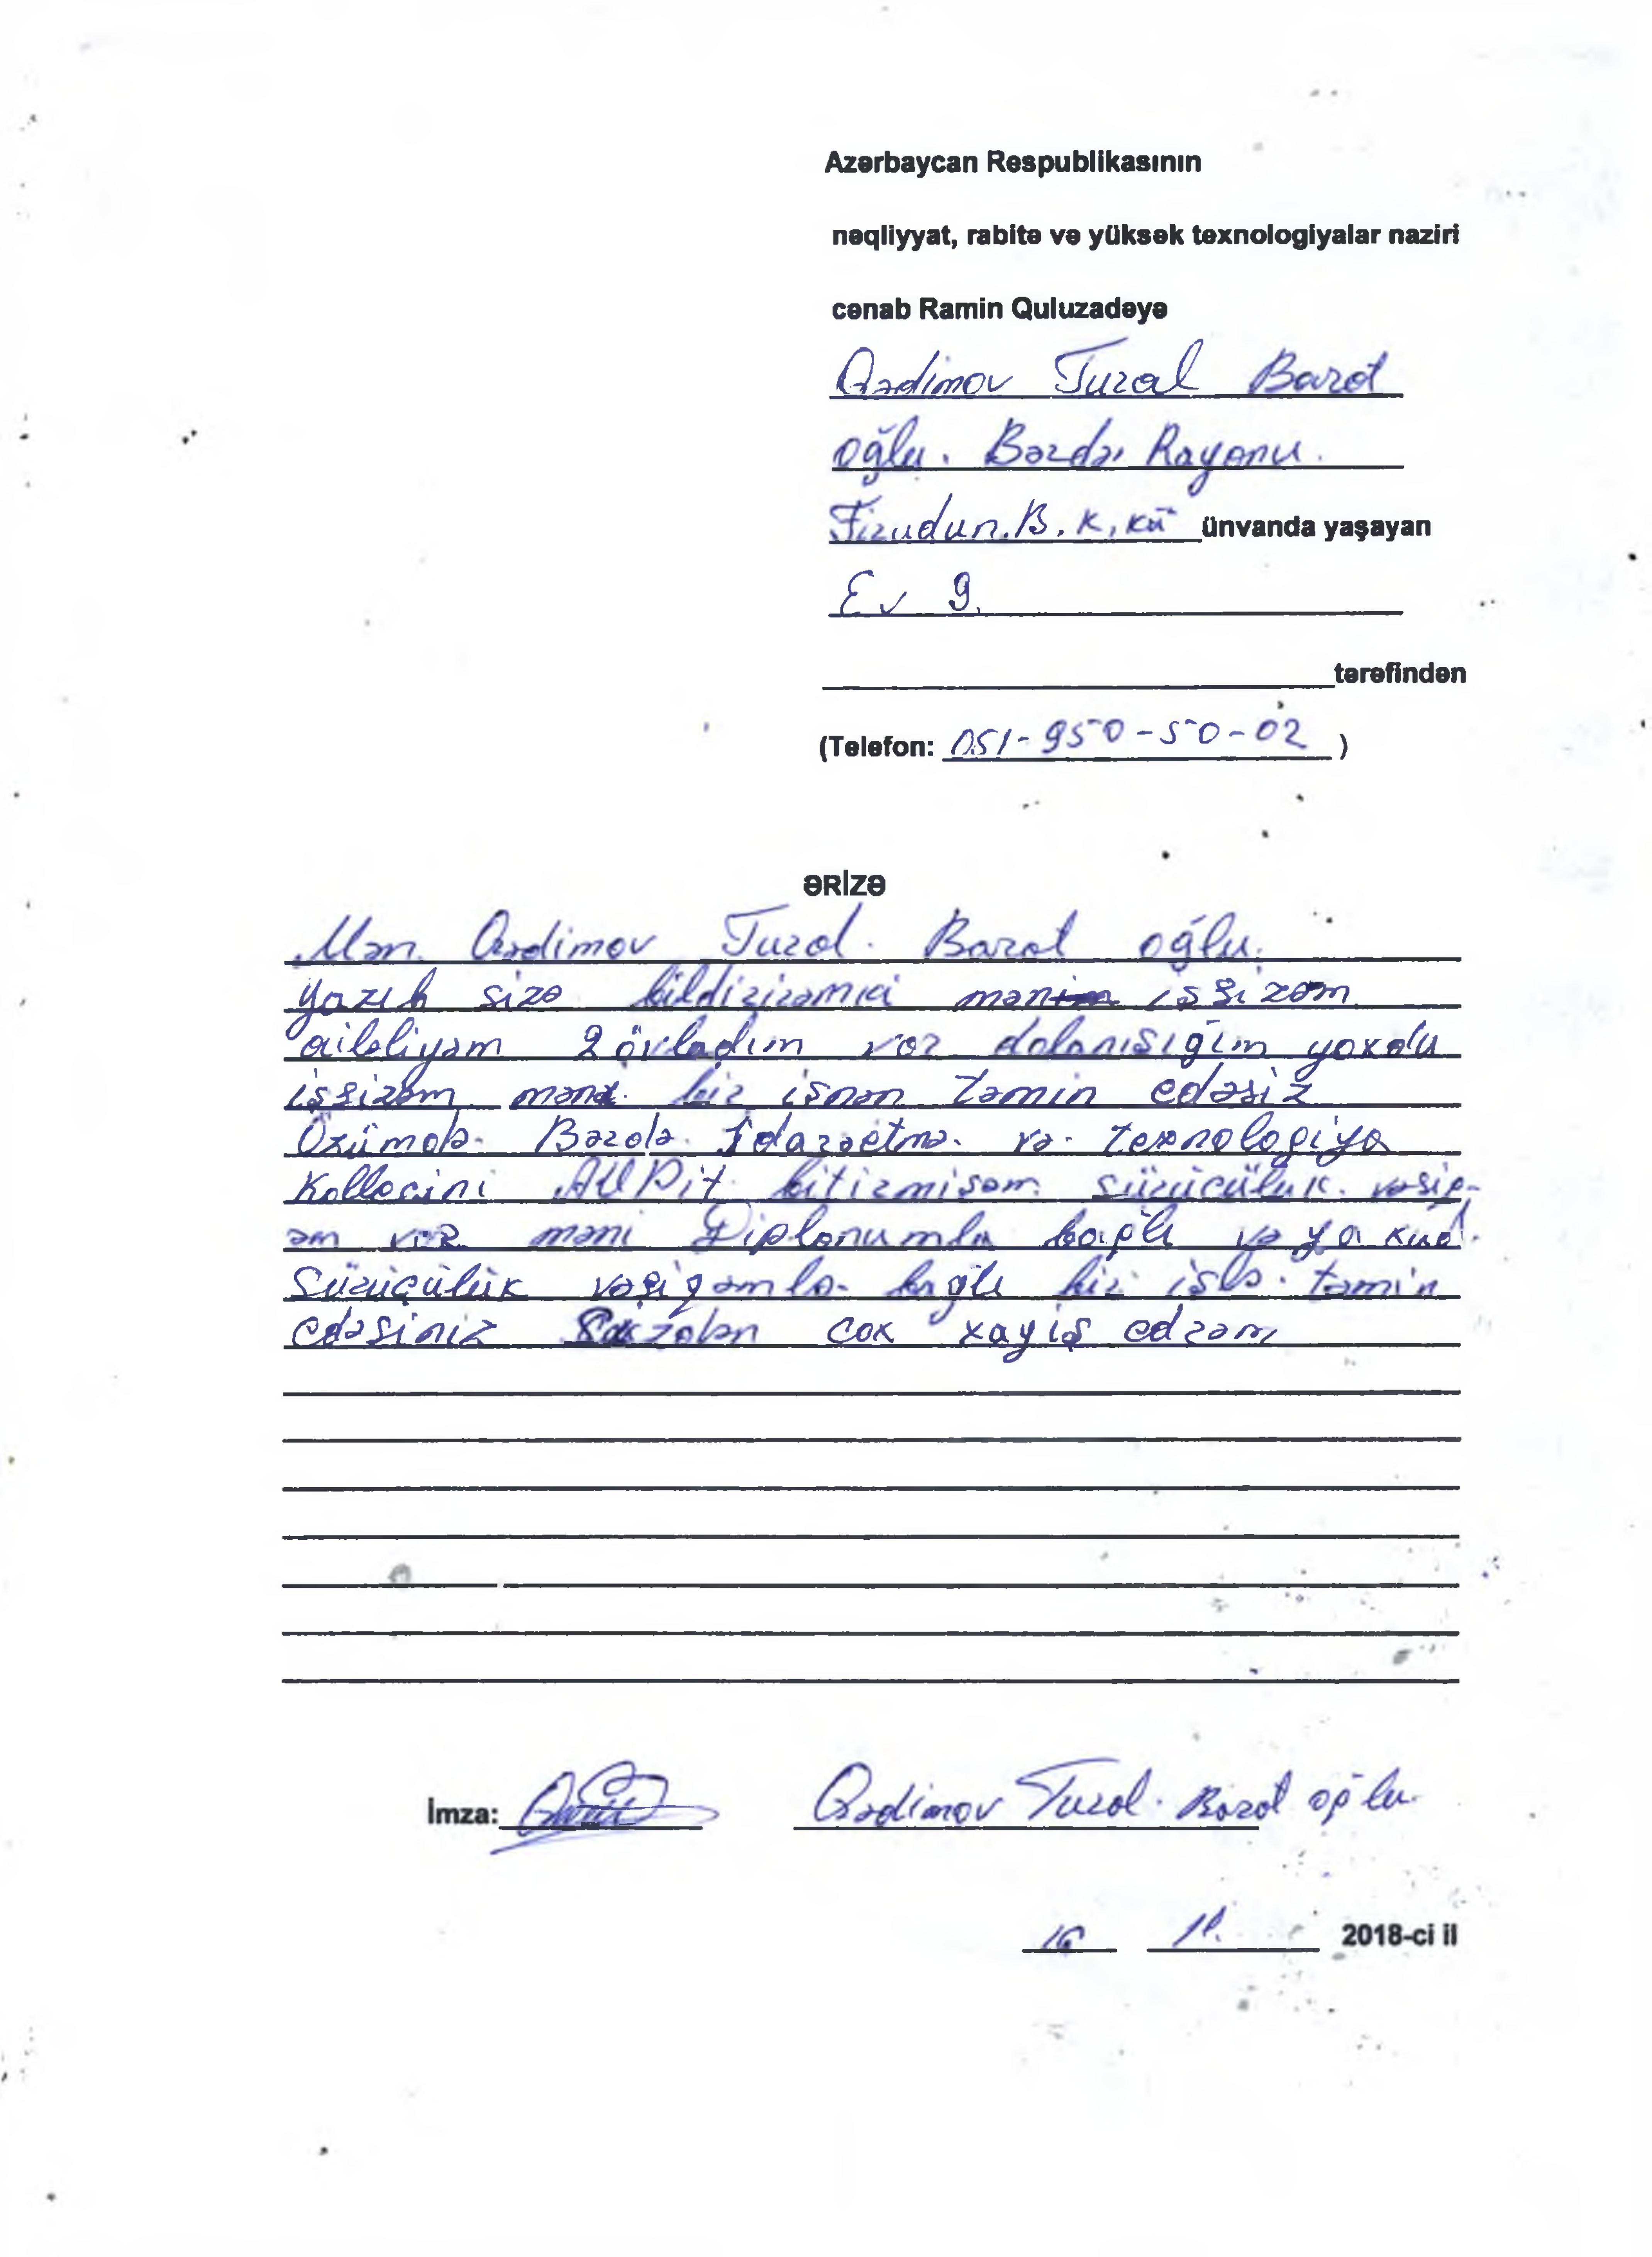 Azərbaycan Respublikasının
nəqliyyat, rabitə və yüksək texnologiyalar naziri
cənab Ramin Quluzadəyə
Qədimov Tural Barat
oğlu. Bərdə Rayonu.
Firudun.B. k, kü ünvanda yaşayan
Ev 9.
tərəfindən
(Telefon: 051-950-50-02 )
ƏRİZƏ
Mən Qədimov Tural. Barat oğlu.
yazıb sizə bildirirəmki işsizəm
ailəliyəm 2 övladım var dolanışığım yoxdu
işsizəm mənə bir işnən təmin edəsiz
Özümdə Bərdə İdarəetmə və texnologiya
Kollecini bitirmişəm sürücülük vəsiq-
əm var məni Diplomumla bağlı və ya xud
Sürücülük vəsiqəmlə bağlı bir işlə təmin
edəsiniz Sizdən çox xayiş edrəm
İmza: Qədimov Tural. Barat oğlu
16 11. 2018-ci il